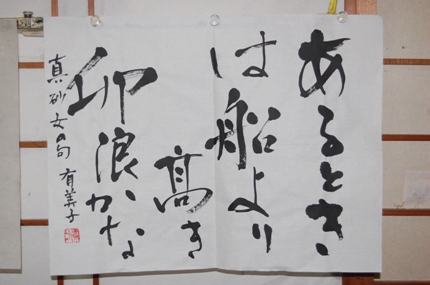 あるとき
は船より
高き
卯浪かな
真砂女の句 有美子